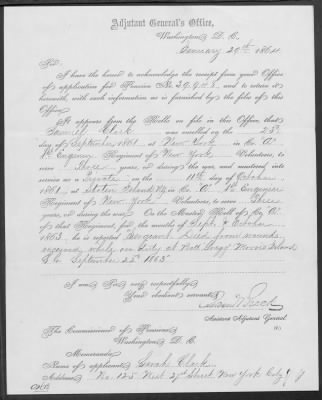 Adjutant General's Office,
Washington, D. C.
January 29th 1864
Sir:
I have the honor to acknowledge the receipt from your Office
of application for Pension No. 39,948, and to return it
herewith, with such information as is furnished by the files of this
Office.
It appears from the Rolls on file in this Office, that
Samuel Clark was enrolled on the 25th
day of September 1861 at New York in Co. "A"
1st Engineer Regiment of New York Volunteers, to
serve Three years, or during the war, and mustered into
service as a Private on the 11th day of October
1861, at Staten Island N.Y. in Co. "A" 1st Engineer
Regiment of New York Volunteers, to serve Three
years, or during the war. On the Muster Roll of Co. "A"
of that Regiment, for the months of Sept. & October
1863, he is reported Sergeant Died from wounds
received while on duty at Batt. Gregg Morris Island
S.C. September 25th 1863.
I am, Sir, very respectfully,
Your obedient servant,
Assistant Adjutant General.
The Commissioner of Pensions,
Washington, D. C.
Memoranda:
Name of applicant, Sarah Clark
Address, No. 125 West 27th Street New York City N.Y.